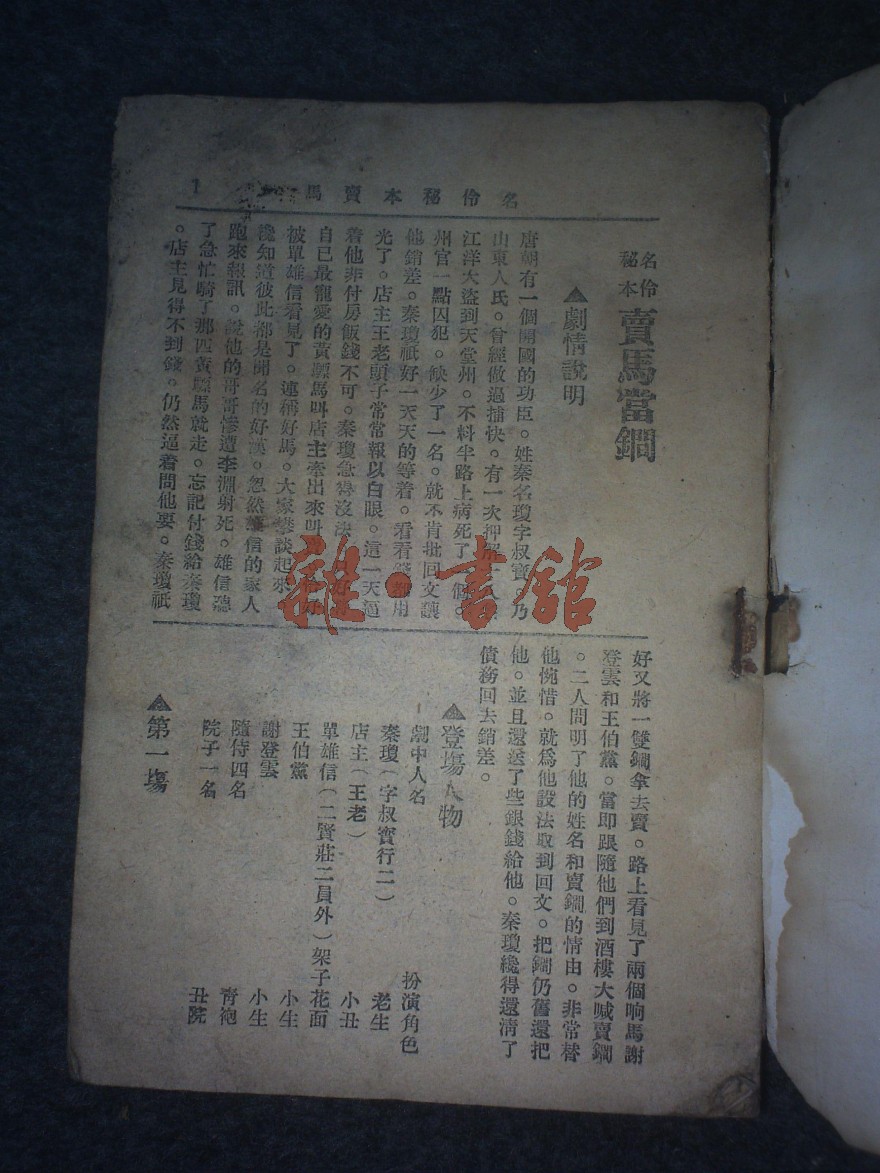 名伶秘本賣馬
1
名伶
秘本
賣馬當鐧
▲劇情說明
唐朝有一個開國的功臣。姓秦名瓊字叔寶。乃
山東人氏。曾經做過捕快。有一次押解
江洋大盜到天堂州。不料半路上病死了一個。
州官一點囚犯。缺少了一名。就不肯批回文讓
他銷差。秦瓊祇好一天天的等着。看看用
光了。店主王老頭子常常報以白眼。這一天逼
着他非付房飯錢不可。秦瓊急得沒法
自已最寵愛的黃驃馬叫店主牽出來叫
被單雄信看見了。連稱好馬。大家攀談起來
纔知道彼此都是聞名的好漢。忽然雄信的家人
跑來報訊。說他的哥哥慘遭李淵射死。雄信聽
了急忙騎了那匹黃驃馬就走。忘記付錢給秦瓊
。店主見得不到錢。仍然逼着問他要。秦瓊祇
好又將一雙鐧拿去賣。路上看見了兩個响馬謝
登雲和王伯黨。當即跟隨他們到酒樓大喊賣鐧
。二人問明了他的姓名和賣鐧的情由。非常替
他惋惜。就爲他設法取到回文。把鐧仍舊還把
他。並且還送了些銀錢給他。秦瓊纔得還清了
債務回去銷差。
▲登塲人物
劇中人名 扮演角色
秦瓊(字叔寶行二) 老生
店主(王老) 小丑
單雄信(二賢莊二員外) 架子花面
王伯黨 小生
謝登雲 小生
隨侍四名 青袍
院子一名 丑院
▲第一塲
雜·書館